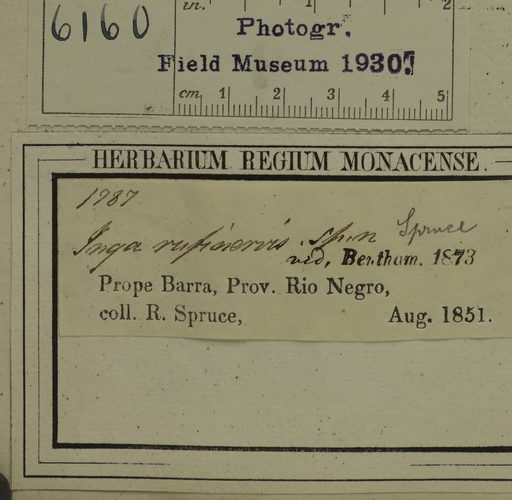 6160
in. 1 2
Photogr.
Field Museum 1930.
cm 1 2 3 4 5
HERBARIUM REGIUM MONACENSE.
1787
Inga rufinervis. Spruce
vid, Bentham. 1873
Prope Barra, Prov. Rio Negro,
coll. R. Spruce, Aug. 1851.